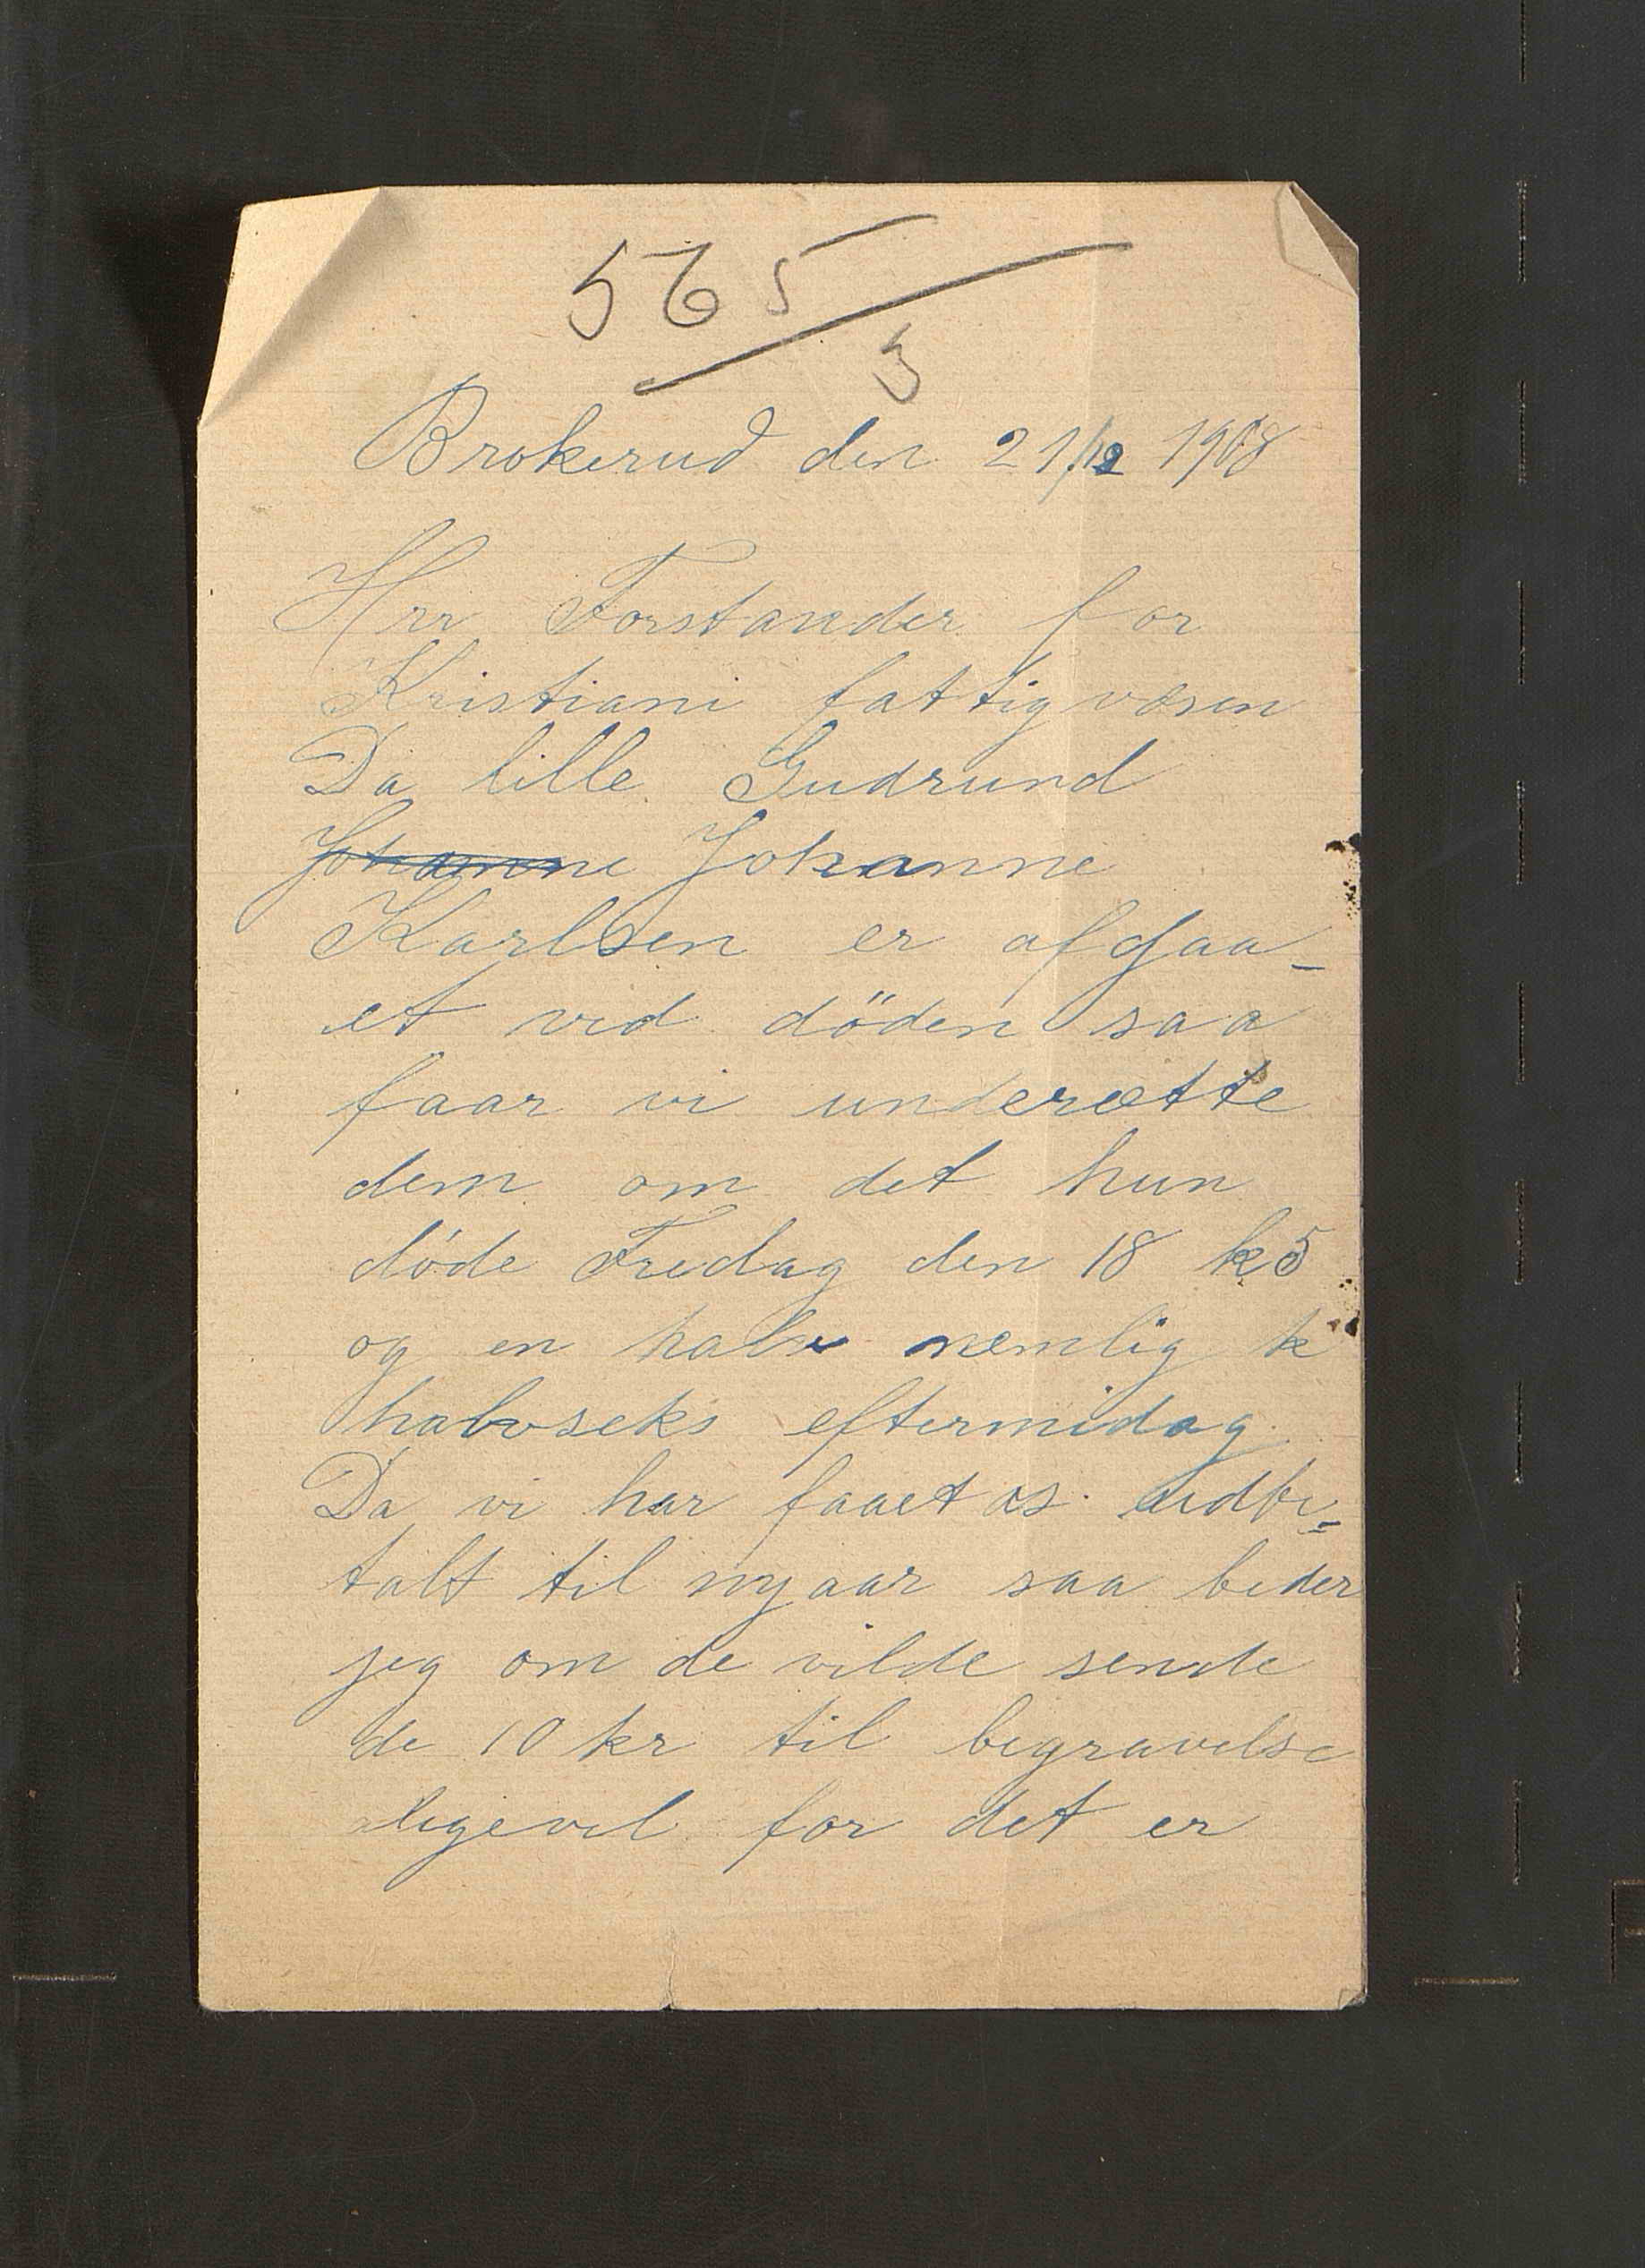 565/3
Brokerud den 21/12 1908
Hrr Forstander for
Kristiani fattigvæsen
Da lille Gudrund
Johanne Johanne
Karlsen er afgaa-
et ved döden saa
faar vi underætte
dem om det hun
döde Fredag den 18 k 5
og en halv nemlig k
halvseks eftermidag.
Da vi har faaet os udbe=
talt til nyaar saa beder
jeg om de vilde sende
de 10 kr til begravelse
ligevel for det er